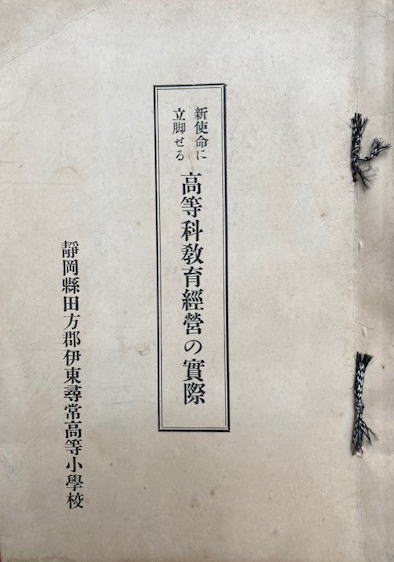 新使命に
立脚せる
高等科教育經營の實際
靜岡縣田方郡伊東尋常高等小學校